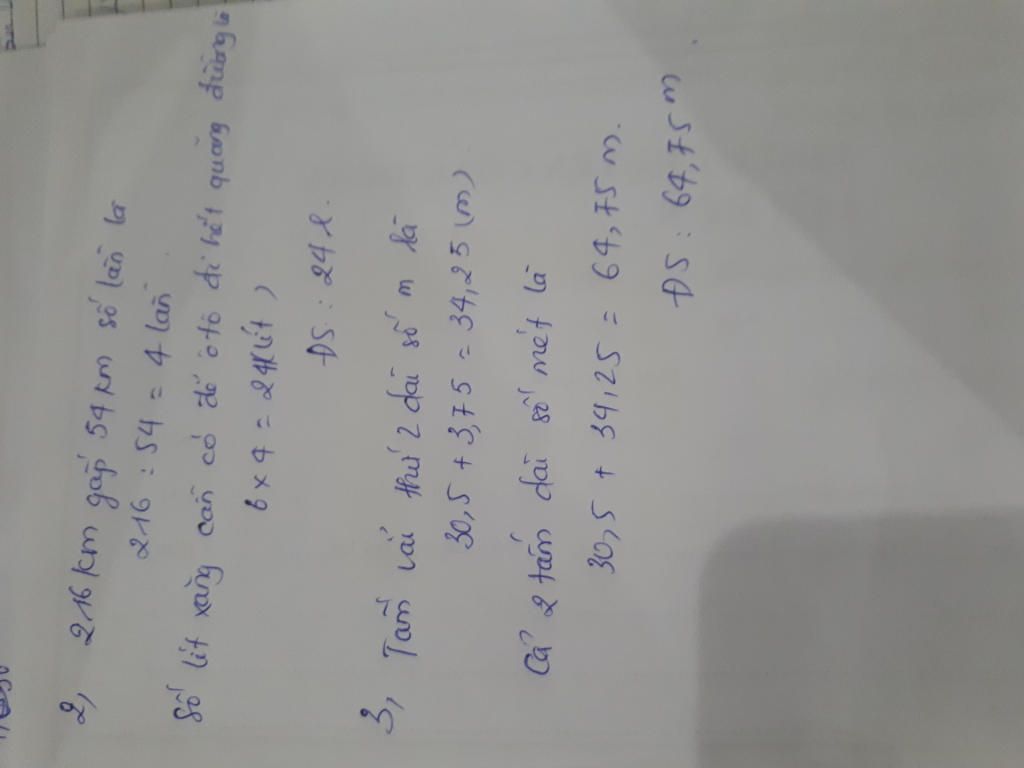 2, 216 km gấp 54 km số lần là
216 : 54 = 4 lần
Số lít xăng cần có để ôtô đi hết quãng đường là
6 x 4 = 24 (lít)
ĐS : 24 l.
3, Tấm vải thứ 2 dài số m là
30,5 + 3,75 = 34,25 (m)
Cả 2 tấm dài số mét là
30,5 + 34,25 = 64,75 m.
ĐS : 64,75 m